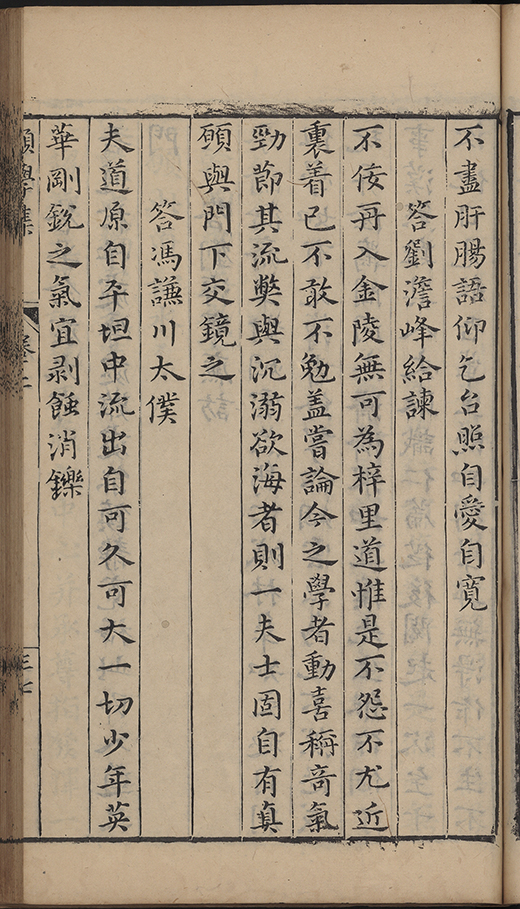 不盡肝腸語仰乞台照自愛自寬
答劉澹峰給諫
不佞再入金陵無可為梓里道惟是不怨不尤近
裏着己不敢不勉蓋嘗論今之學者動喜稱奇氣
勁節其流獘與沉溺欲海者則一夫士固自有真
願與門下交鏡之
答馮謙川太僕
夫道原自平坦中流出自可久可大一切少年英
華剛銳之氣宜剥蝕消鑠
願學集 卷之二 三七